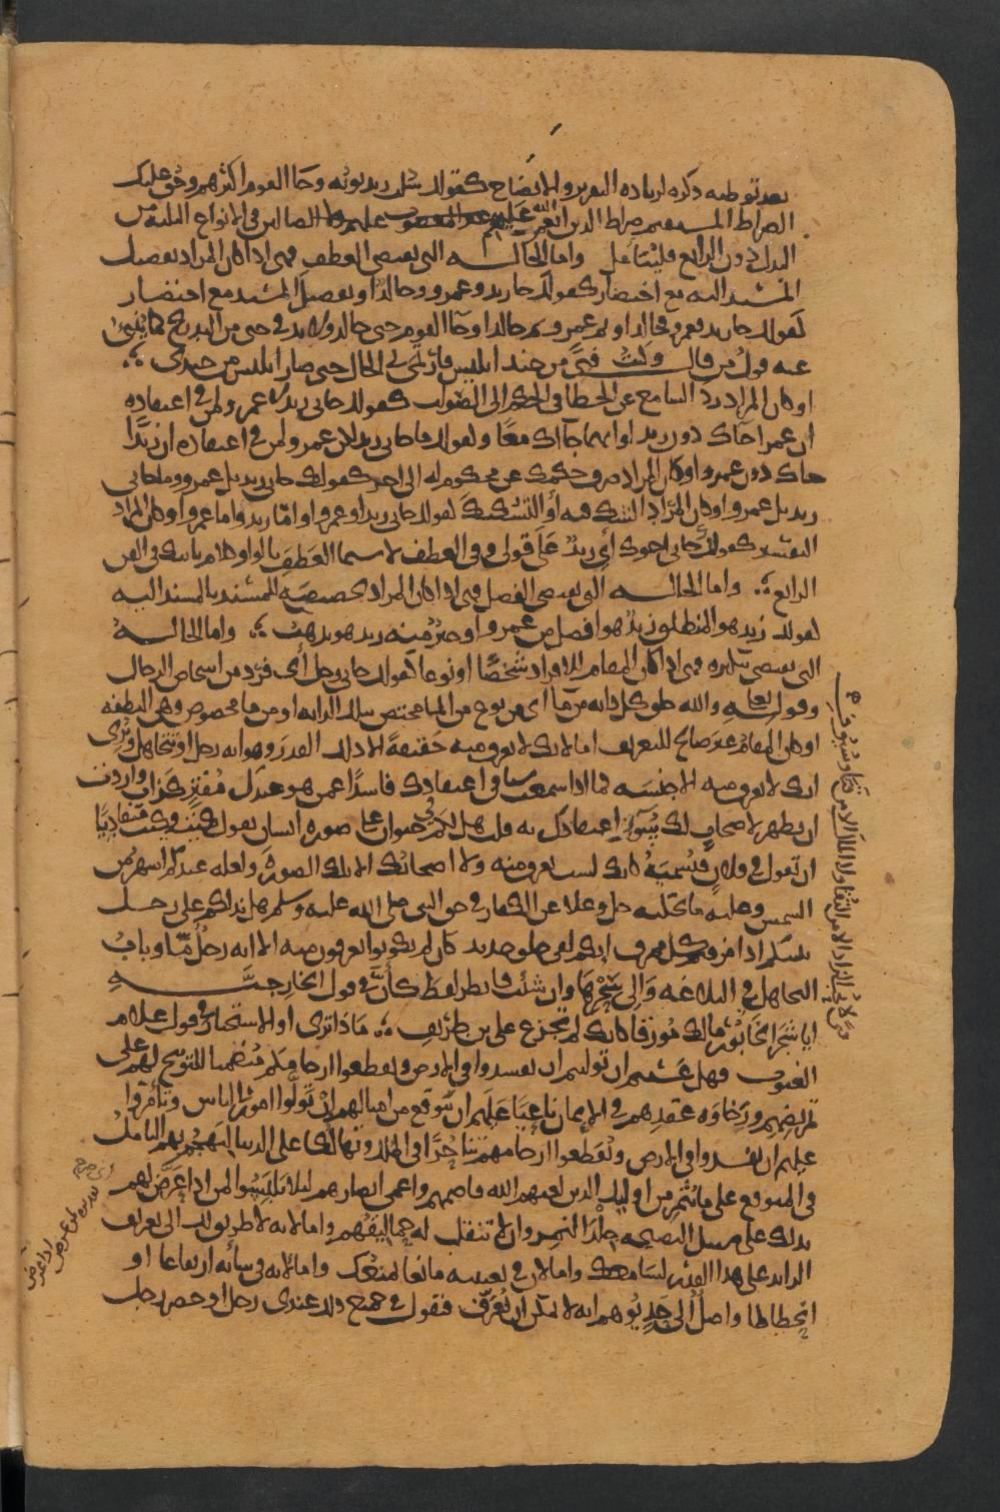 بعد توطئة ذكره لزيادة التقرير والايضاح كقولك سُلب زيد ثوبُه وجاء القوم اكثرهم وحق عليك
الصراط المستقيم صراط الذين انعمت عليهم غير المغضوب عليهم ولا الضالين في الانواع الثلثة من
البدل دون الرابع فليتأمل واما الحالة التي تقتضي العطف فهي اذا كان المراد تفصيل
المسند اليه مع اختصار كقولك جاء زيد وعمرو وخالد او تفصيل المسند مع اختصار
كقولك جاء زيد فعمرو فخالد او ثم عمرو ثم خالد او جاء القوم حتى خالد ولابد في حتى من التدريج كما ينبئ
عنه قول من قال وكنتُ فتى من جند ابليس فارتقى بي الحال حتى صار ابليس من جندي
او كان المراد رد السامع عن الخطا في الحكم الى الصواب كقولك جاءني زيد لا عمرو لمن في اعتقاده
ان عمرا جاءك دون زيد او انهما جاآك معًا وكقولك ما جاءني زيد لكن عمرو لمن في اعتقاده ان زيدًا
جاءك دون عمرو او كان المراد صرف حكمك عن محكوم له الى اخر كقولك جاءني زيد بل عمرو وما جاءني
زيد بل عمرو او كان المراد الشك فيه أو التشكيك كقولك جاءني زيد او عمرو او اما زيد واما عمرو او كان المراد
التفسير كقولك جاءني اخوك أي زيدٌ على قولي وفي العطف لا سيما العطف بالواو كلام ياتيك في الفن
الرابع واما الحالة التي تقتضي الفصل فهي اذا كان المراد تخصيصه للمسند بالمسند اليه
كقولك زيد هو المنطلق زيدٌ هو افضل من عمرو او خيرٌ منه زيد هو يذهبُ واما الحالة
التي تقتضي تنكيره فهي اذا كان المقام للافراد شخصًا او نوعا كقولك جاءني رجل أي فرد من اشخاص الرجال
وقوله تعالى والله خلق كل دابة من ماء أي من نوع من الماء مختص بتلك الدابة او من ما مخصوص وهي النطفة
او كان المقام غير صالح للتعريف اما لانك لا تعرف منه حقيقةً الا ذلك القدر وهو انه رجل او تتجاهل وتُرى
انك لا تعرف منه الا جنسه كما اذا سمعت شيا في اعتقادك فاسدًا عمن هو عندك مُفترٍ كذاب واردت
ان تظهر لاصحابٍ لك سُوءَ اعتقادك به قلت هل لكم في حيوان على صورة انسان يقول كيت وكيت متفاديًا
ان تقول في فلان فتُسميَهُ كانك لست تعرف منه ولا اصحابك الا تلك الصورةَ ولعله عندكم اشهر من
الشمس وعليه ما يحكيه جل وعلا عن الكفار في حق النبي صلى الله عليه وسلم هل ندلكم على رجل
ينبئكم اذا مزقتم كل ممزق انكم لفي خلق جديد كأن لم يكونوا يعرفون منه الا انه رجُلٌ مّا وبابُ
التجاهل في البلاغة وَإلى سحرها وان شئت فانظر لفظ كأنّ في قول الخارجيّة
ايا شجر الخابور مالك مُورقا كانك لم تجزع على بن طريف ماذا ترى او الاستخبار في قول علام
الغيوب فهل عسيتم ان توليتم ان تفسدوا في الارض وتقطعوا ارحامكم مُتضمنا للتوبيخ لهم على
تمريضهم ورَخاوة عقدهم في الايمان ناعيًا عليهم ان يُتوقع من امثالهم ان تَولَّوا امورَ الناس وتأمّروا
عليهم ان يفسدوا في الارض وتُقطعوا ارحامهم تناحُرًا في الملك وتهالكًا على الدنيا ليهجُم بهم التاملُ
في المتوقع على ما يُثمر من اوليك الذين لعنهم الله فاصمهم واعمى ابصارهم ليلا يَلبَسُوا لمن اذا عَرَّضَ لهم
بذلك على سبيل النصيحة جِلْدَ النمر وان لا تنقلب له حماليقُهم واما لانه لا طريق لك الى تعريف
الزائد على هذا القدر لسامعك واما لان في تعيينه مانعا لمنعك واما لانه في شأنه ارتفاعا او
انحطاطا واصلٌ الى حَدٍ يُوهم انه لا يمكن ان يُعرَف فتقول في جميع ذلك عندي رجل او حضر رجل